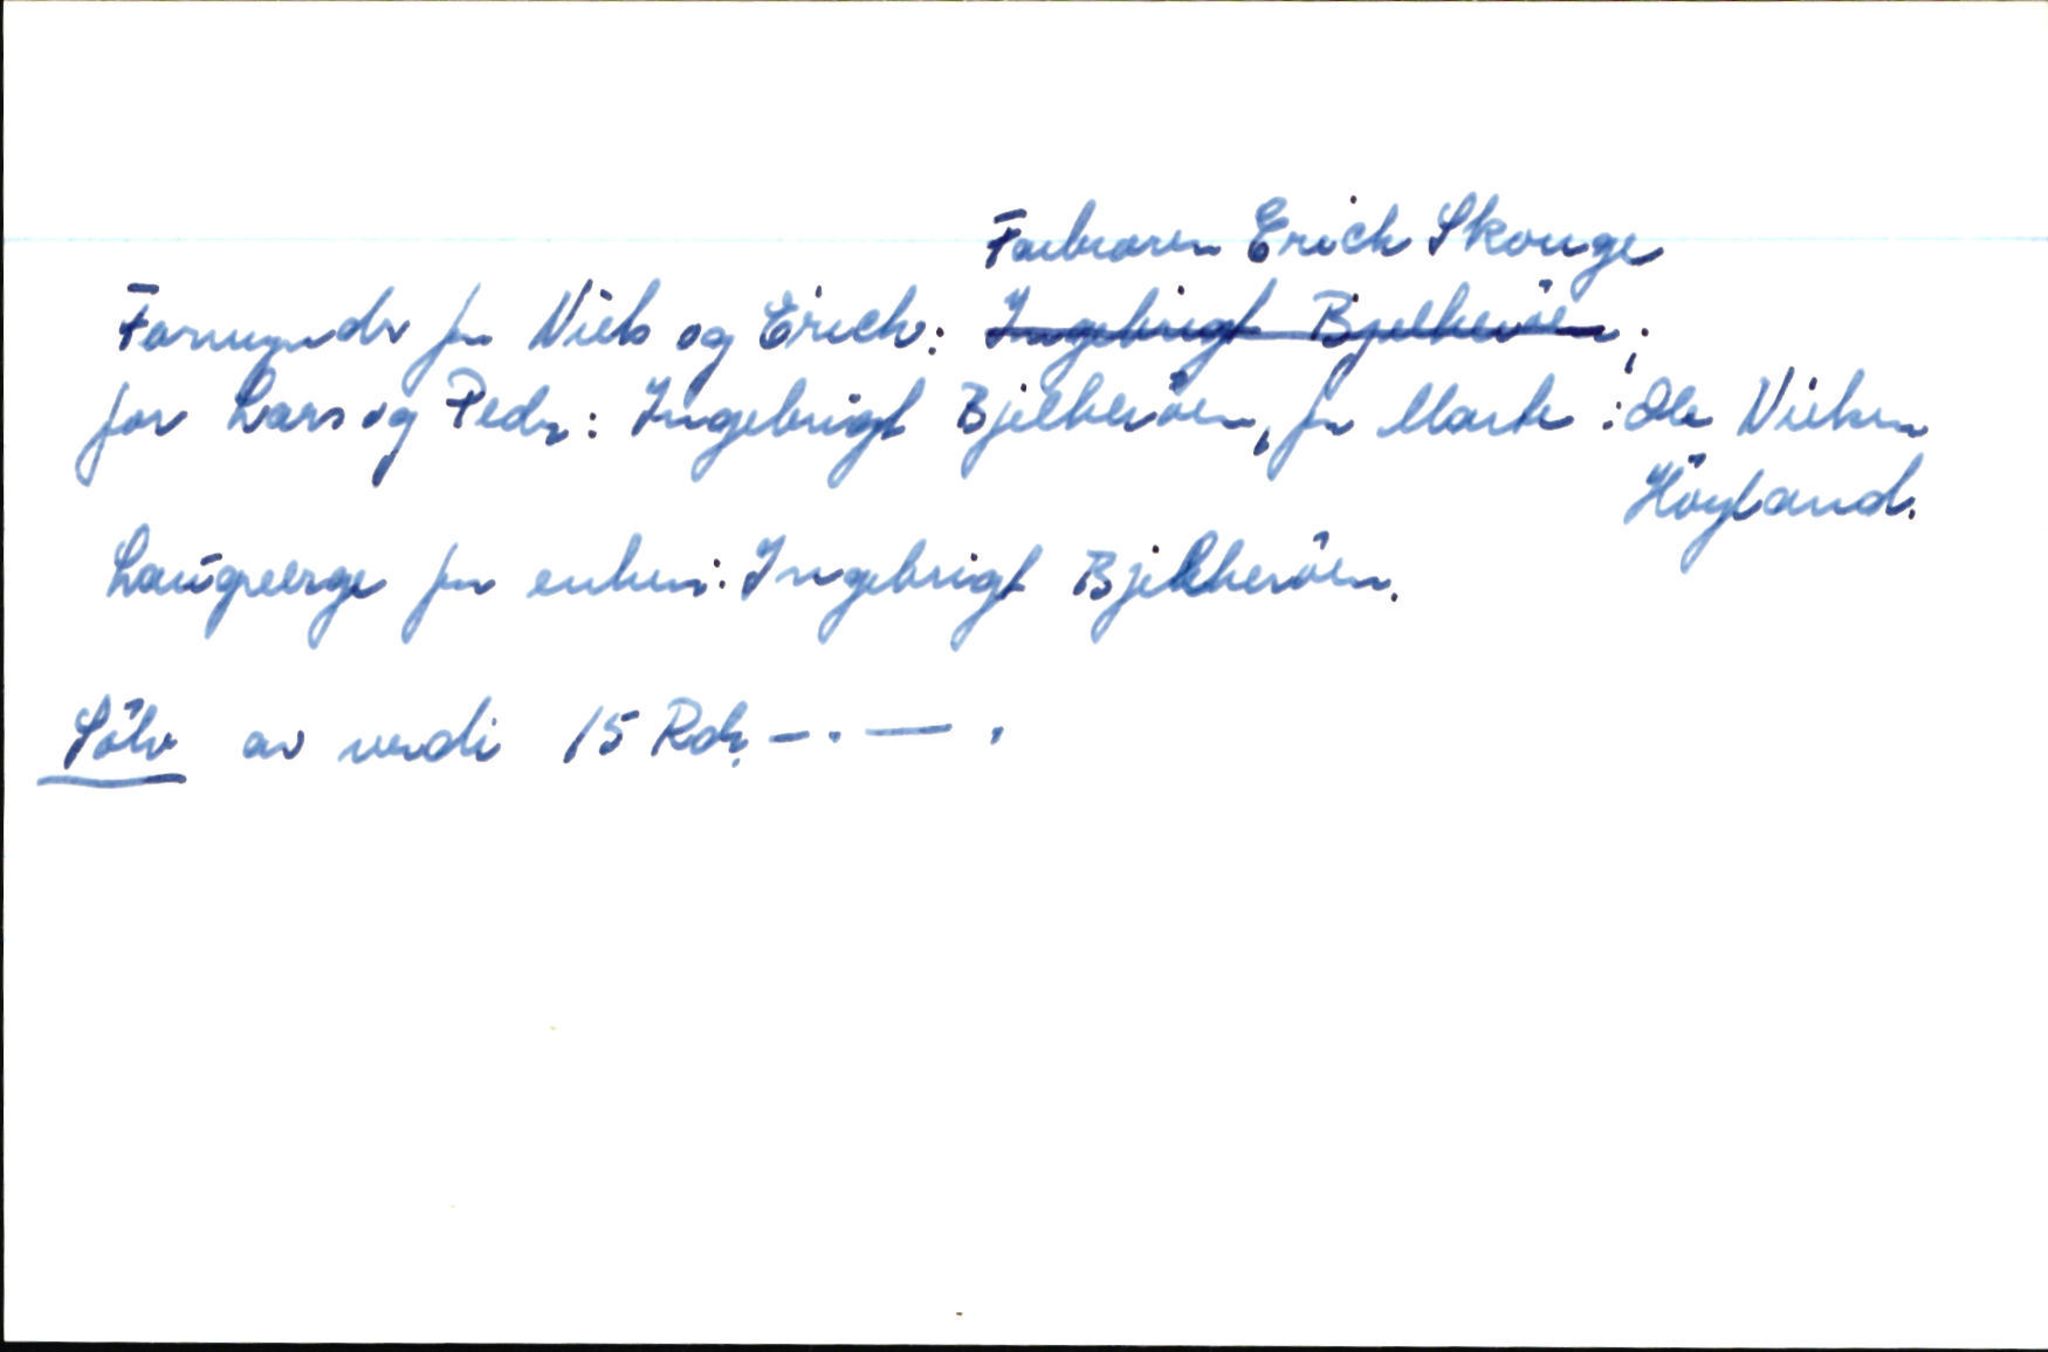 Farbroren Erich Skouge
Formynder for Niels og Erich: Ingebrigt Bjelkeröen;
for Lars og Peder: Ingebrigt Bjelkeröen, for Marte: Ole Nielsen
Höyland.
Laugverge for enken: Ingebrigt Bjelkeröen.
Sölv av verdi 15 Rdr. - . — .